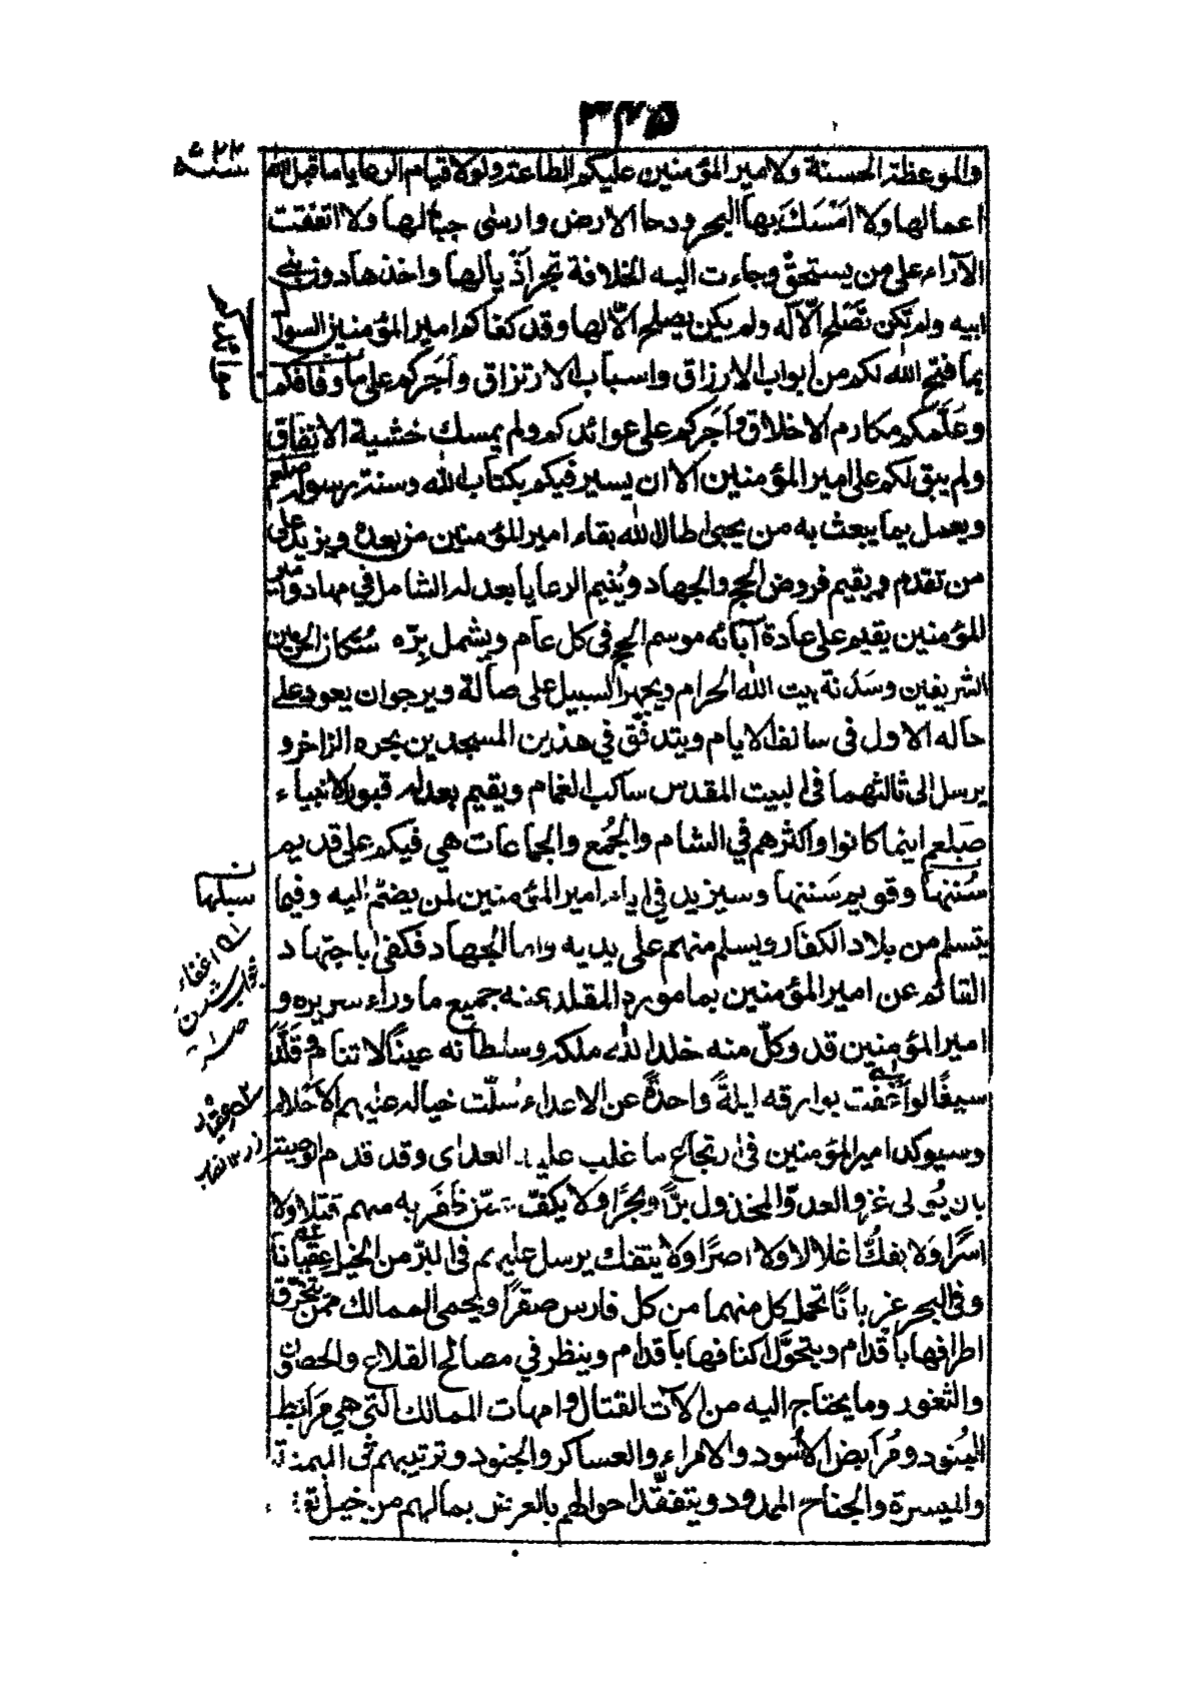 ٣٤٥
والموعظة الحسنة ولامير المؤمنين عليكم الطاعة ولولا قيام الرعايا ما قبل الله
اعمالها ولا امسك بها البحر ودحا الارض وارسى جبالها ولا اتفقت
الآراء على من يستحق وجاءت اليه الخلافة تجر اذيالها واخذها دون بني
ابيه ولم تكن تصلح الّا له ولم يكن يصلح الّا لها وقد كفاكم امير المؤمنين السوال
بما فتح الله لكم من ابواب الارزاق واسباب الارتزاق واجركم على وفاقكم
وعلّمكم مكارم الاخلاق واجركم على عوائدكم ولم يمسك خشية الانفاق
ولم يبق لكم على امير المؤمنين الا ان يسير فيكم بكتاب الله وسنة رسوله صلعم
ويعمل بما يبعث به من يجبى اطال الله بقاء امير المؤمنين من بعده ويزيد على
من تقدم ويقيم فروض الحج والجهاد وينيم الرعايا بعدله الشامل في مهاد وامير
المؤمنين يقيم على عادة آبائه موسم الحج في كل عام ويشمل برّه سكان الحرمين
الشريفين وسدنة بيت الله الحرام ويجهز السبيل على ضالة ويرجوان يعود على
حاله الاول فى سالف الايام ويتدفق في هذين المسجدين بحره الزاخر و
يرسل الى ثالثهما فى البيت المقدس ساكب الغمام ويقيم بعدله قبور الانبياء
صلعم اينما كانوا واكثرهم في الشام والجُمع والجماعات هي فيكم على قديم
سُننها وقويم سَننها وسيزيد في ايام امير المؤمنين لمن يضمّ اليه وفيما
يتسلم من بلاد الكفار ويسلم منهم على يديه واما الجهاد فكفى باجتهاد
القائم عن امير المؤمنين بماموره المقلد عنه جميع ما وراء سريره و
امير المؤمنين قد وكل منه خلد الله ملكه وسلطانه عينًا لا تنام وقلّد
سيفًا لو اغفت بوارقه ليلةً واحدةً عن الاعداء سُلّت خياله عليهم الاحلام
وسيوكد امير المؤمنين فى ارتجاع ما غلب عليه العدى وقد قدم الوصية
بان يُوالى غزو العدوّ المخذول برًّا وبحرًا ولا يكفّ عمّن ظفر به منهم قتلا ولا
اسرًا ولا يفكُّ اغلالا ولا اصرًا ولا ينفك يرسل عليهم فى البرّ من الخيل عقبانًا
وفى البحر غربانًا تحمل كل منهما من كل فارس صقرًا ويحمى الممالك ممن يتخرّق
اطرافها باقدام ويتحوّل اكنافها باقدام وينظر في مصالح القلاع والحصون
والثغور وما يحتاج اليه من الآت القتال وامهات الممالك التى هي مرابط
البنود ومرابض الاسود والامراء والعساكر والجنود وترتيبهم في الميمنة
والميسرة والجناح الممدود ويتفقد احوالهم بالعرض بمالهم من خيل تع
سبلها
١ اغفاء